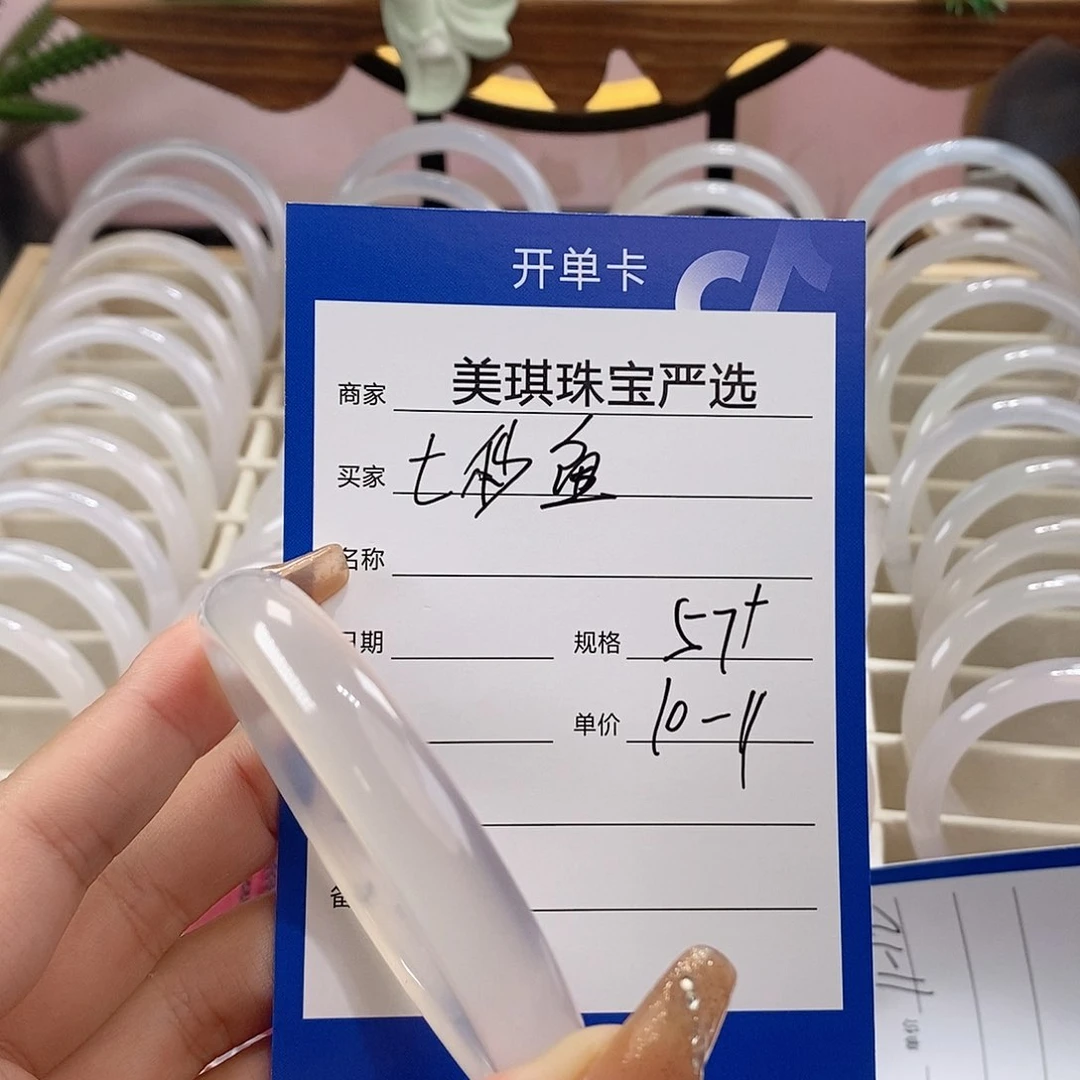 开单卡
商家 美琪珠宝严选
买家 七秒鱼
名称
日期 规格 57+
单价 10-11
备
单价